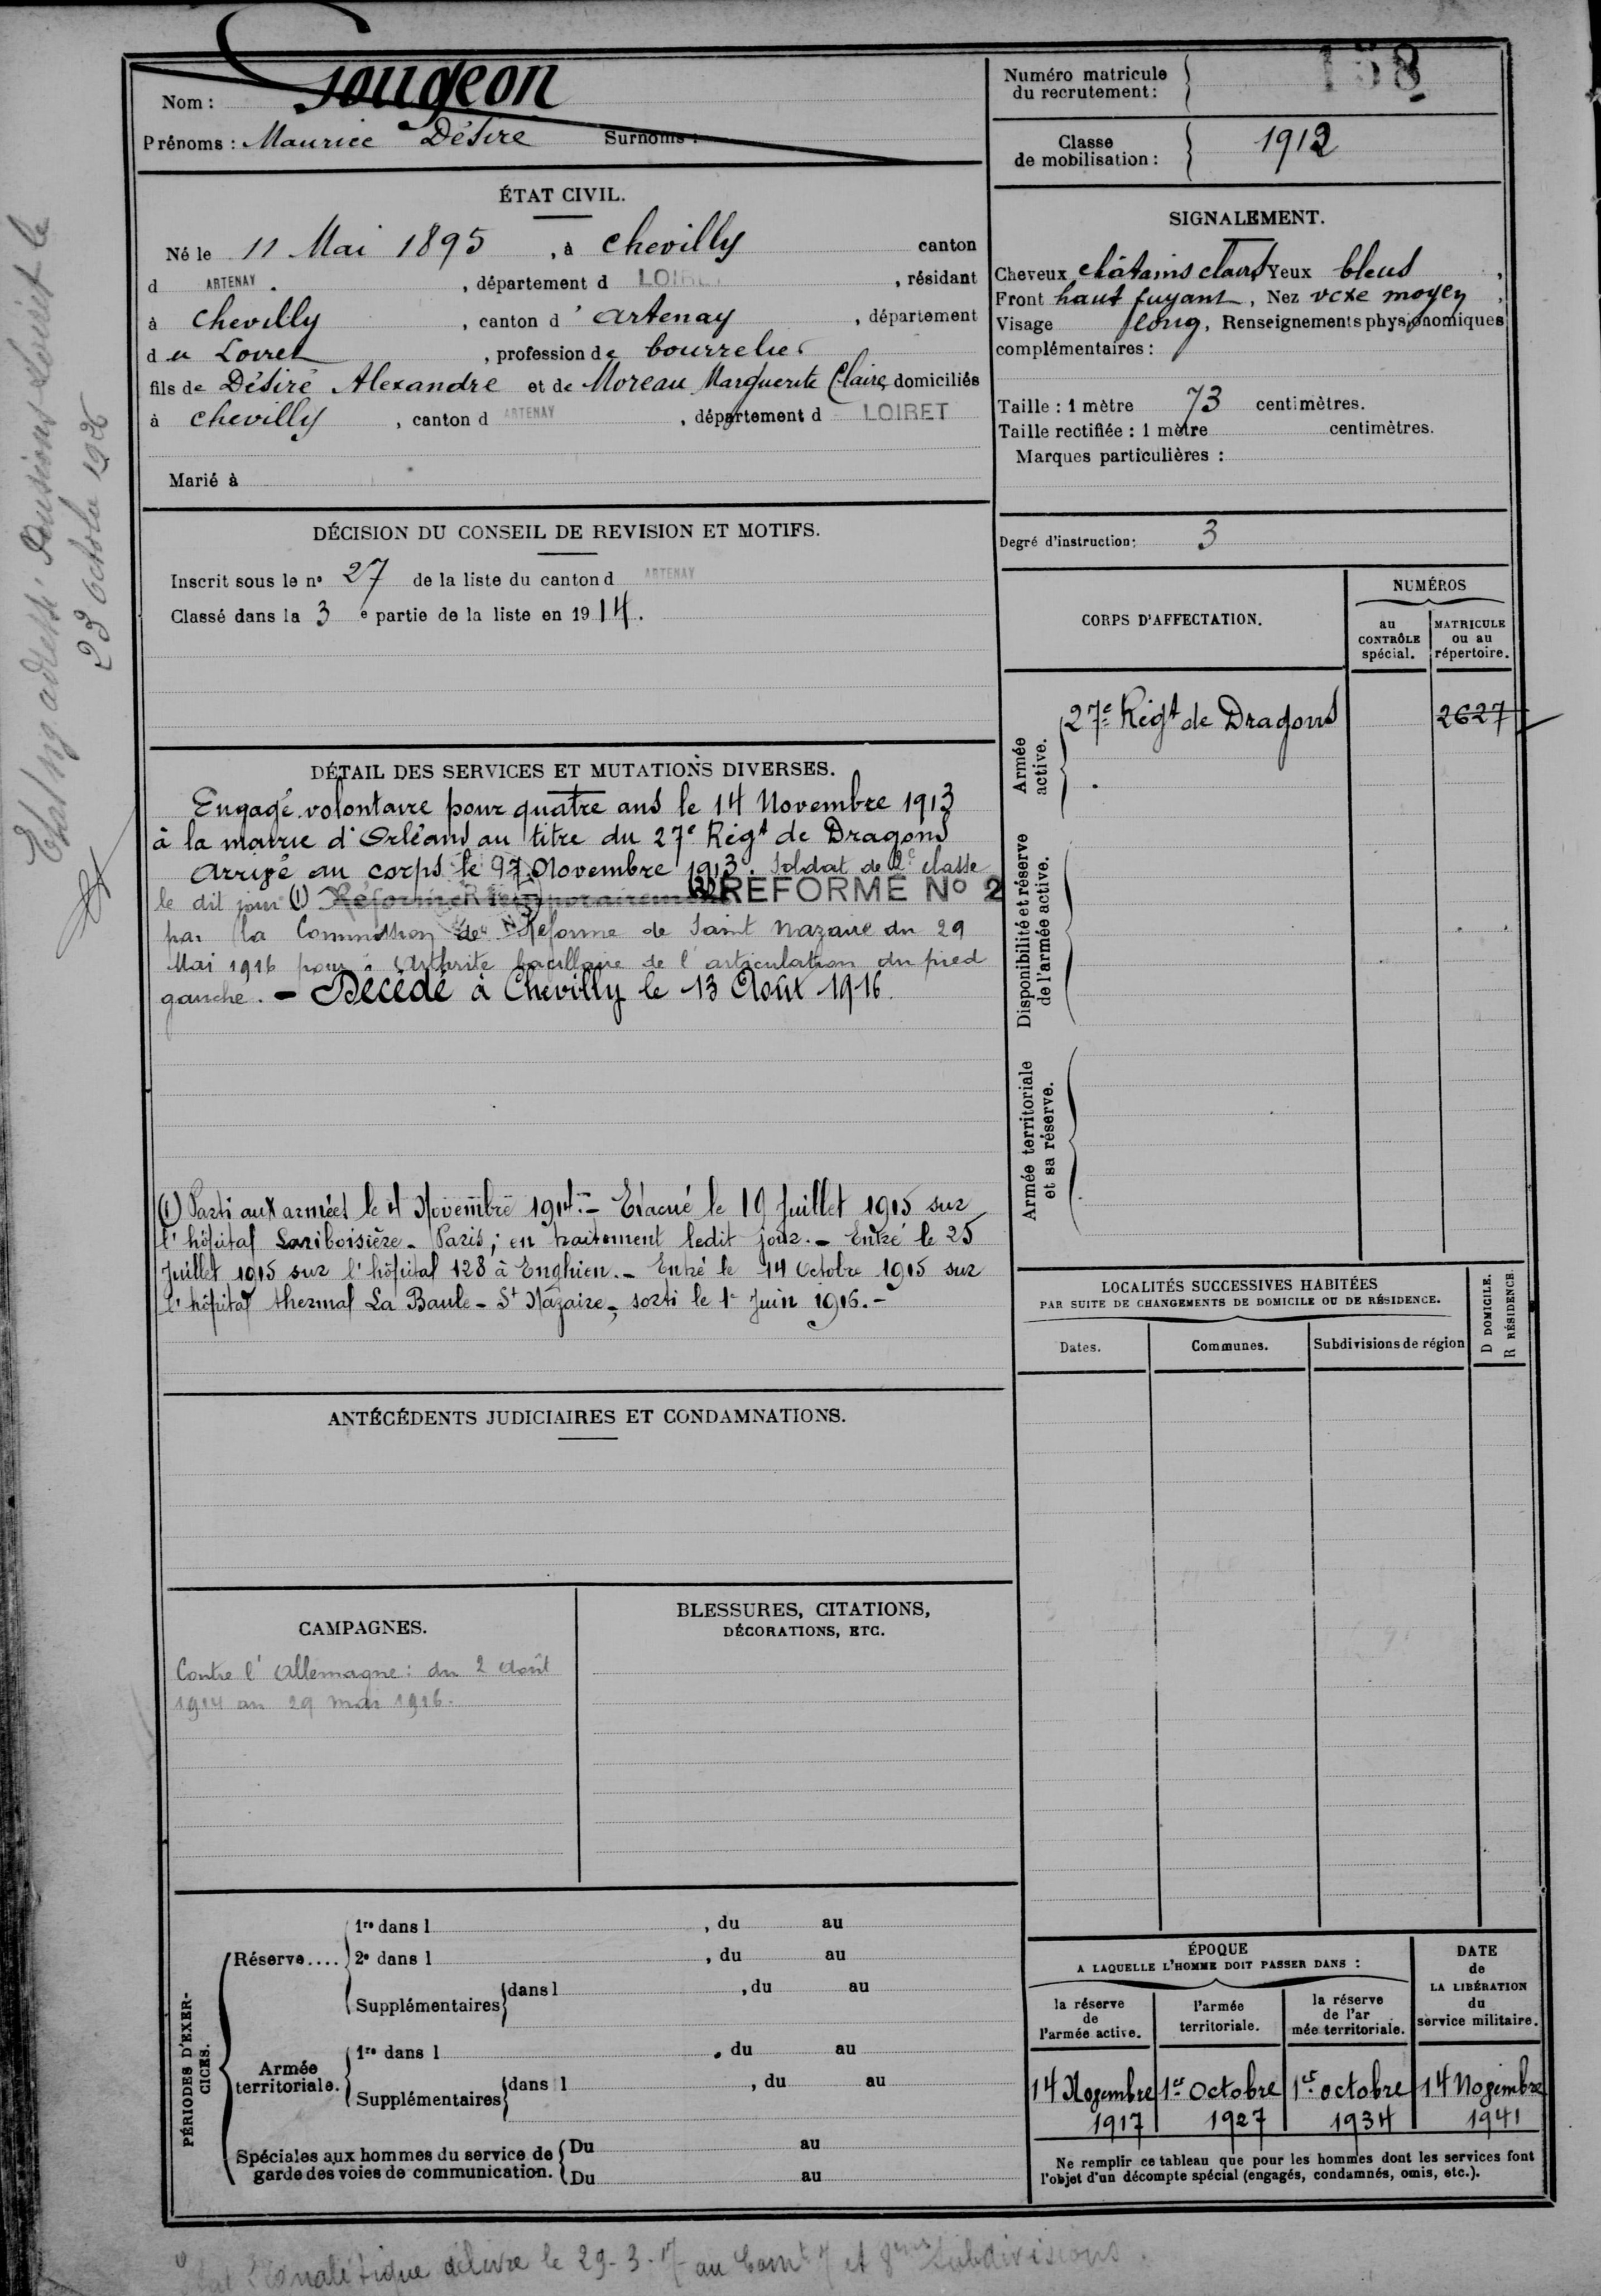 Gougeon
Nom :
Prénoms : Maurice Désiré Surnoms :
Numéro matricule du recrutement : 158
Classe de mobilisation : 1912
ÉTAT CIVIL.
Né le 11 Mai 1895, à Chevilly canton
d ARTENAY, département d LOIRET, résidant
à Chevilly, canton d'Artenay, département
du Loiret, profession de bourrelier
fils de Désiré Alexandre et de Moreau Marguerite Claire domiciliés
à Chevilly, canton d ARTENAY, département d LOIRET
Marié à
SIGNALEMENT.
Cheveux châtains clairs Yeux bleus,
Front haut fuyant, Nez vexe moyen,
Visage long, Renseignements physionomiques
complémentaires :
Taille : 1 mètre 73 centimètres.
Taille rectifiée : 1 mètre centimètres.
Marques particulières :
Degré d'instruction : 3
DÉCISION DU CONSEIL DE REVISION ET MOTIFS.
Inscrit sous le n° 27 de la liste du canton d ARTENAY
Classé dans la 3e partie de la liste en 1914.
DÉTAIL DES SERVICES ET MUTATIONS DIVERSES.
Engagé volontaire pour quatre ans le 14 Novembre 1913
à la mairie d'Orléans au titre du 27e Régt de Dragons
Arrivé au corps le 17 Novembre 1913. Soldat de 2e classe
le dit jour (1) Réformé temporairement (2) REFORMÉ No 2
par la Commission de Réforme de Saint Nazaire du 29
Mai 1916 pour : Arthrite bacillaire de l'articulation du pied
gauche. - Décédé à Chevilly le 13 Août 1916.
(1) Parti aux armées le 4 Novembre 1914. - Evacué le 19 Juillet 1915 sur
l'hôpital Lariboisière - Paris ; en traitement ledit jour. - Entré le 25
Juillet 1915 sur l'hôpital 128 à Enghien. - Entré le 14 Octobre 1915 sur
l'hôpital thermal La Baule - St Nazaire, sorti le 1er Juin 1916. -
ANTÉCÉDENTS JUDICIAIRES ET CONDAMNATIONS.
CAMPAGNES.
Contre l'Allemagne : du 2 Août
1914 au 29 mai 1916.
BLESSURES, CITATIONS,
DÉCORATIONS, ETC.
CORPS D'AFFECTATION.
NUMÉROS
au CONTRÔLE spécial.
MATRICULE ou au répertoire.
Armée active.
27e Régt de Dragons 2627
Disponibilité et réserve de l'armée active.
Armée territoriale et sa réserve.
LOCALITÉS SUCCESSIVES HABITÉES
PAR SUITE DE CHANGEMENTS DE DOMICILE OU DE RÉSIDENCE.
Dates. Communes. Subdivisions de région
D DOMICILE.
R RÉSIDENCE.
PÉRIODES D'EXERCICES.
Réserve....
1re dans l , du au
2e dans l , du au
Supplémentaires dans l , du au
Armée territoriale.
1re dans l , du au
Supplémentaires dans l , du au
Spéciales aux hommes du service de garde des voies de communication.
Du au
Du au
ÉPOQUE
A LAQUELLE L'HOMME DOIT PASSER DANS :
la réserve de l'armée active.
l'armée territoriale.
la réserve de l'armée territoriale.
DATE de LA LIBÉRATION du service militaire.
14 Novembre 1917
1er Octobre 1927
1er octobre 1934
14 Novembre 1941
Ne remplir ce tableau que pour les hommes dont les services font
l'objet d'un décompte spécial (engagés, condamnés, omis, etc.).
adressé Pensions Loiret le
23 octobre 1926
délivré le 29-3-17 au et 8eme Subdivisions